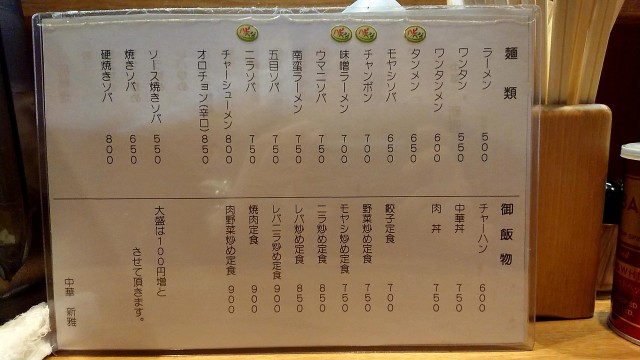 麺類
ラーメン 500
ワンタン 550
ワンタンメン 600
タンメン 650
モヤシソバ 650
チャンポン 700
味噌ラーメン 700
ウマニソバ 750
南蛮ラーメン 750
五目ソバ 750
ニラソバ 750
チャーシューメン 800
オロチョン(辛口) 850
ソース焼きソバ 550
焼きソバ 650
硬焼きソバ 800
御飯物
チャーハン 600
中華丼 750
肉丼 750
餃子定食 700
野菜炒め定食 750
モヤシ炒め定食 750
ニラ炒め定食 850
レバ炒め定食 850
レバニラ炒め定食 900
焼肉定食 900
肉野菜炒め定食 900
大盛は100円増と
させて頂きます。
中華 新雅